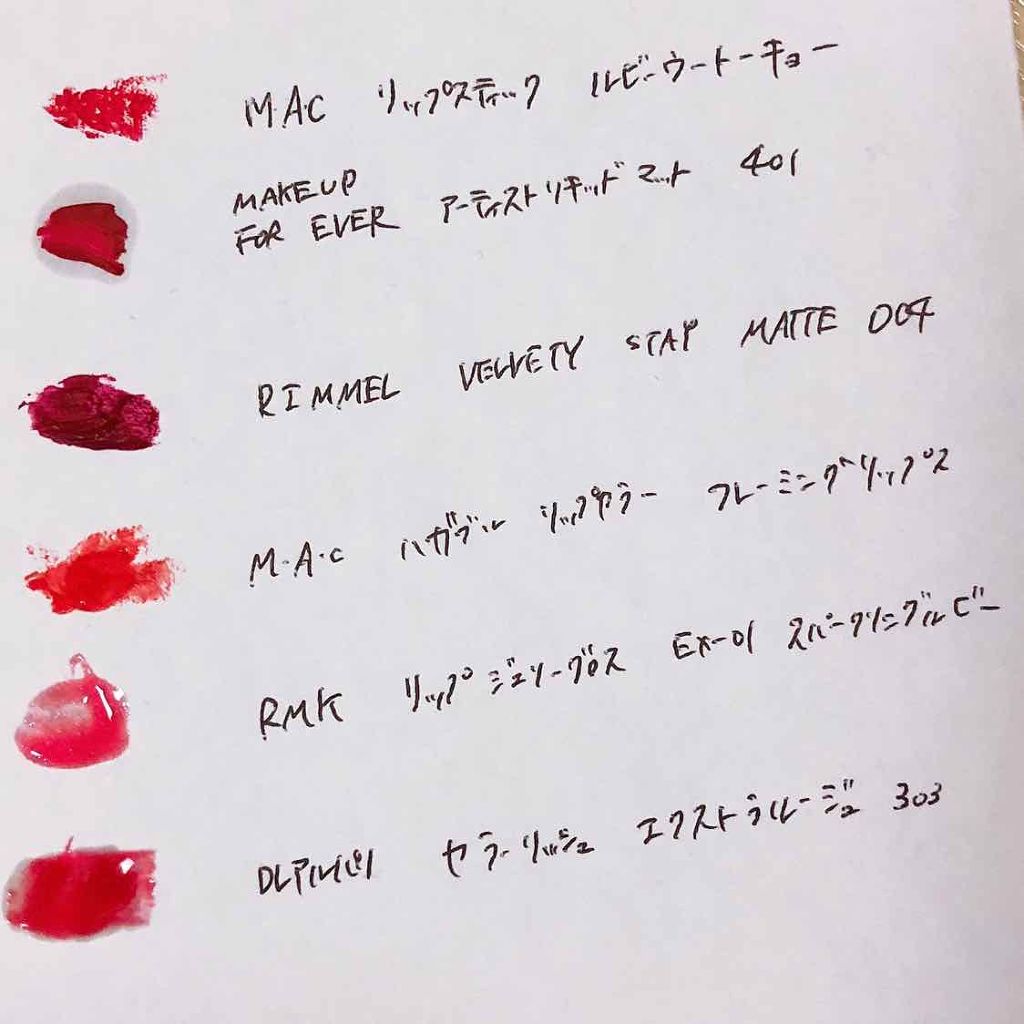 M・A・C リップスティック ルビーウートーキョー
MAKE UP
FOR EVER アーティストリキッドマット 401
RIMMEL VELVETY STAY MATTE 004
M・A・C ハガブル リップカラー フレーミングリップス
RMK リップジェリーグロス EX-01 スパークリングルビー
カラーリッシュ エクストラルージュ 303